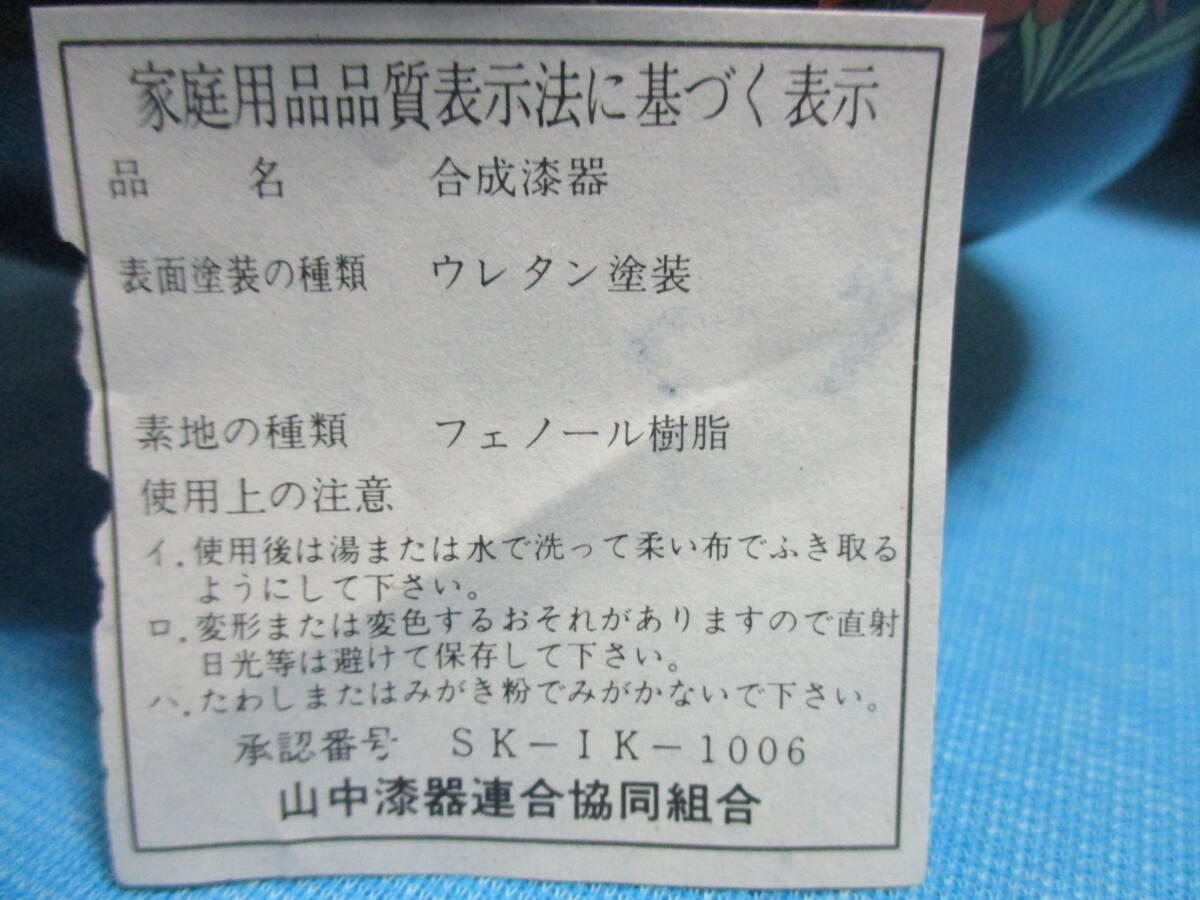 家庭用品品質表示法に基づく表示
品名 合成漆器
表面塗装の種類 ウレタン塗装
素地の種類 フェノール樹脂
使用上の注意
イ.使用後は湯または水で洗って柔い布でふき取る
ようにして下さい。
ロ.変形または変色するおそれがありますので直射
日光等は避けて保存して下さい。
ハ.たわしまたはみがき粉でみがかないで下さい。
承認番号 SK-IK-1006
山中漆器連合協同組合